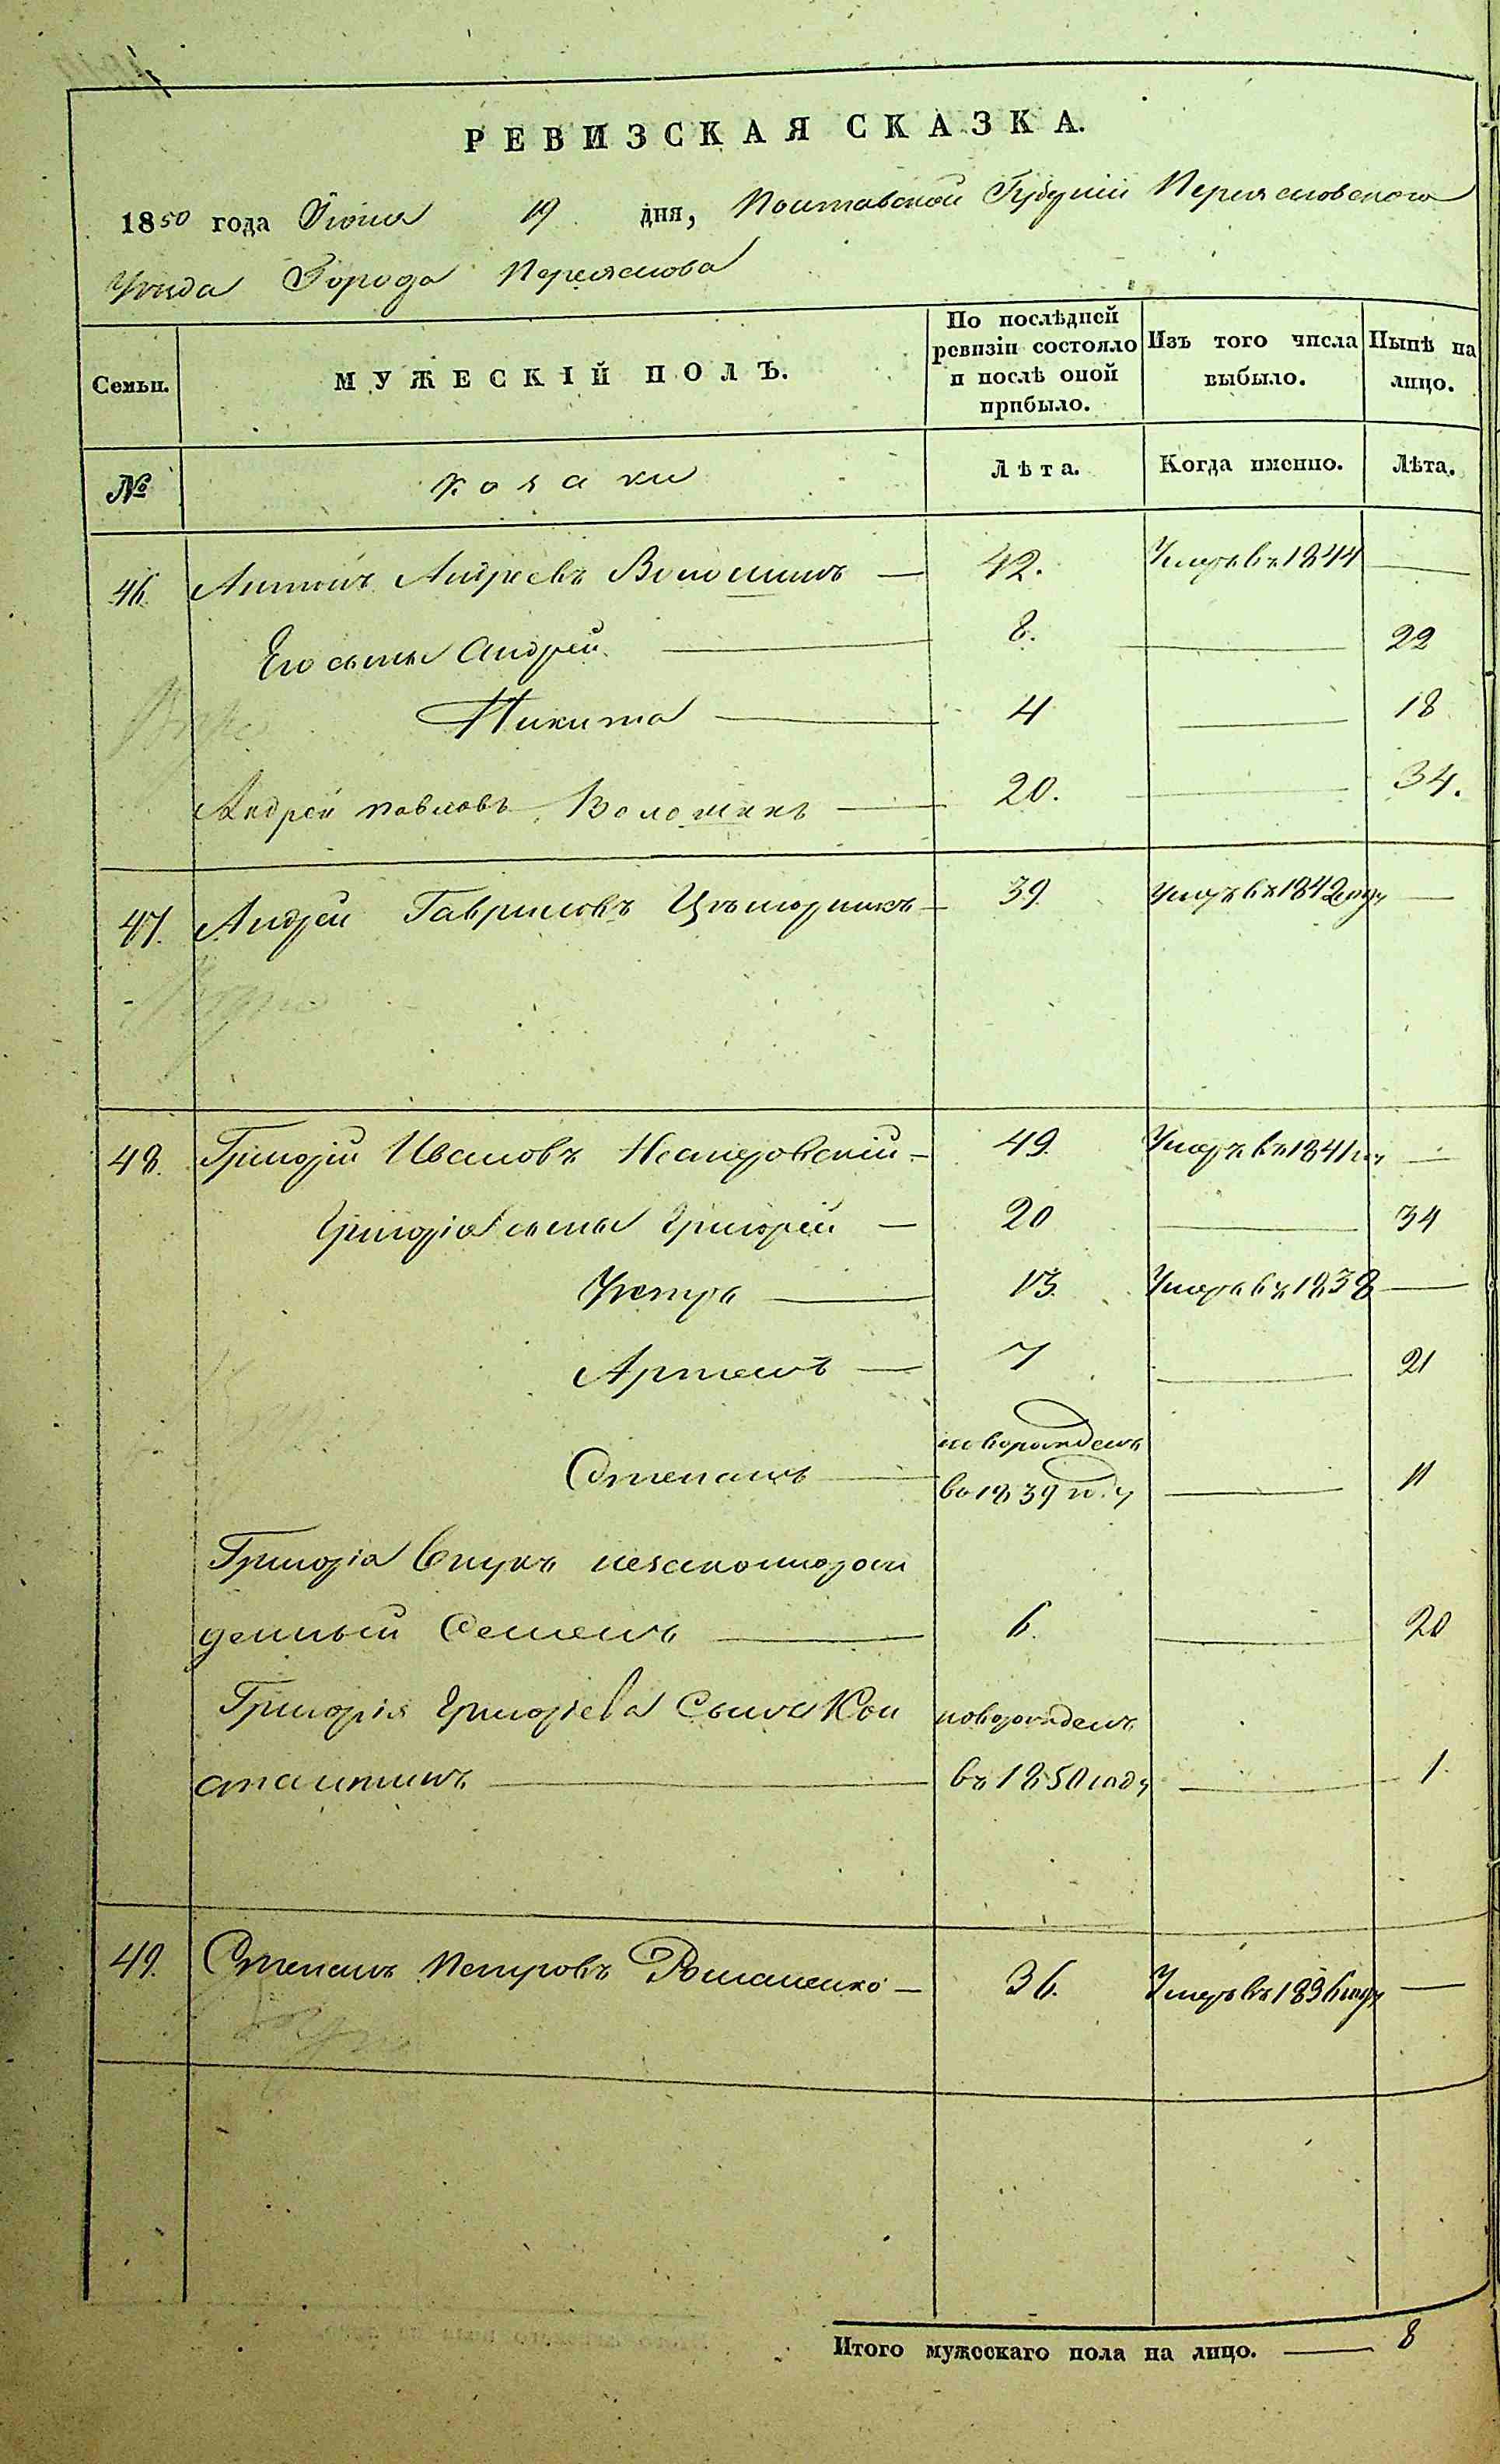 РЕВИЗСКАЯ СКАЗКА.
1850 года Июня 19 дня, Полтавской Губернии Переясловского
Уезда Города Переяслова
Семьи. МУЖЕСКІЙ ПОЛЪ. По послѣдней ревизіи состояло и послѣ оной прибыло. Изъ того числа выбыло. Нынѣ на лицо.
№ козаки Лѣта. Когда именно. Лѣта.
46. Антонъ Андреевъ Волошинъ — 42. Умеръ въ 1844 —
Его сыны Андрей — 8. — 22
Никита — 4 — 18
Андрей Павловъ Волошинъ — 20. — 34.
47. Андрей Гавриловъ — 39. Умеръ въ 1842 году —
48. Григорій Ивановъ — 49. Умеръ въ 1841 —
Григорія сыны Григорій — 20 — 34
Петръ — 13. Умеръ въ 1838 —
Артемъ — 7 — 21
Степанъ — новорожденъ
во 1839 году — 11
Григорія внукъ незаконнорож
денный Семенъ — 6. — 20
Григорія Григоріева сынъ Кон новорожденъ
стантинъ — въ 1850 году — 1.
49. Степанъ Петровъ Романенко — 36. Умеръ въ 1836 году —
Итого мужескаго пола на лицо. — 8